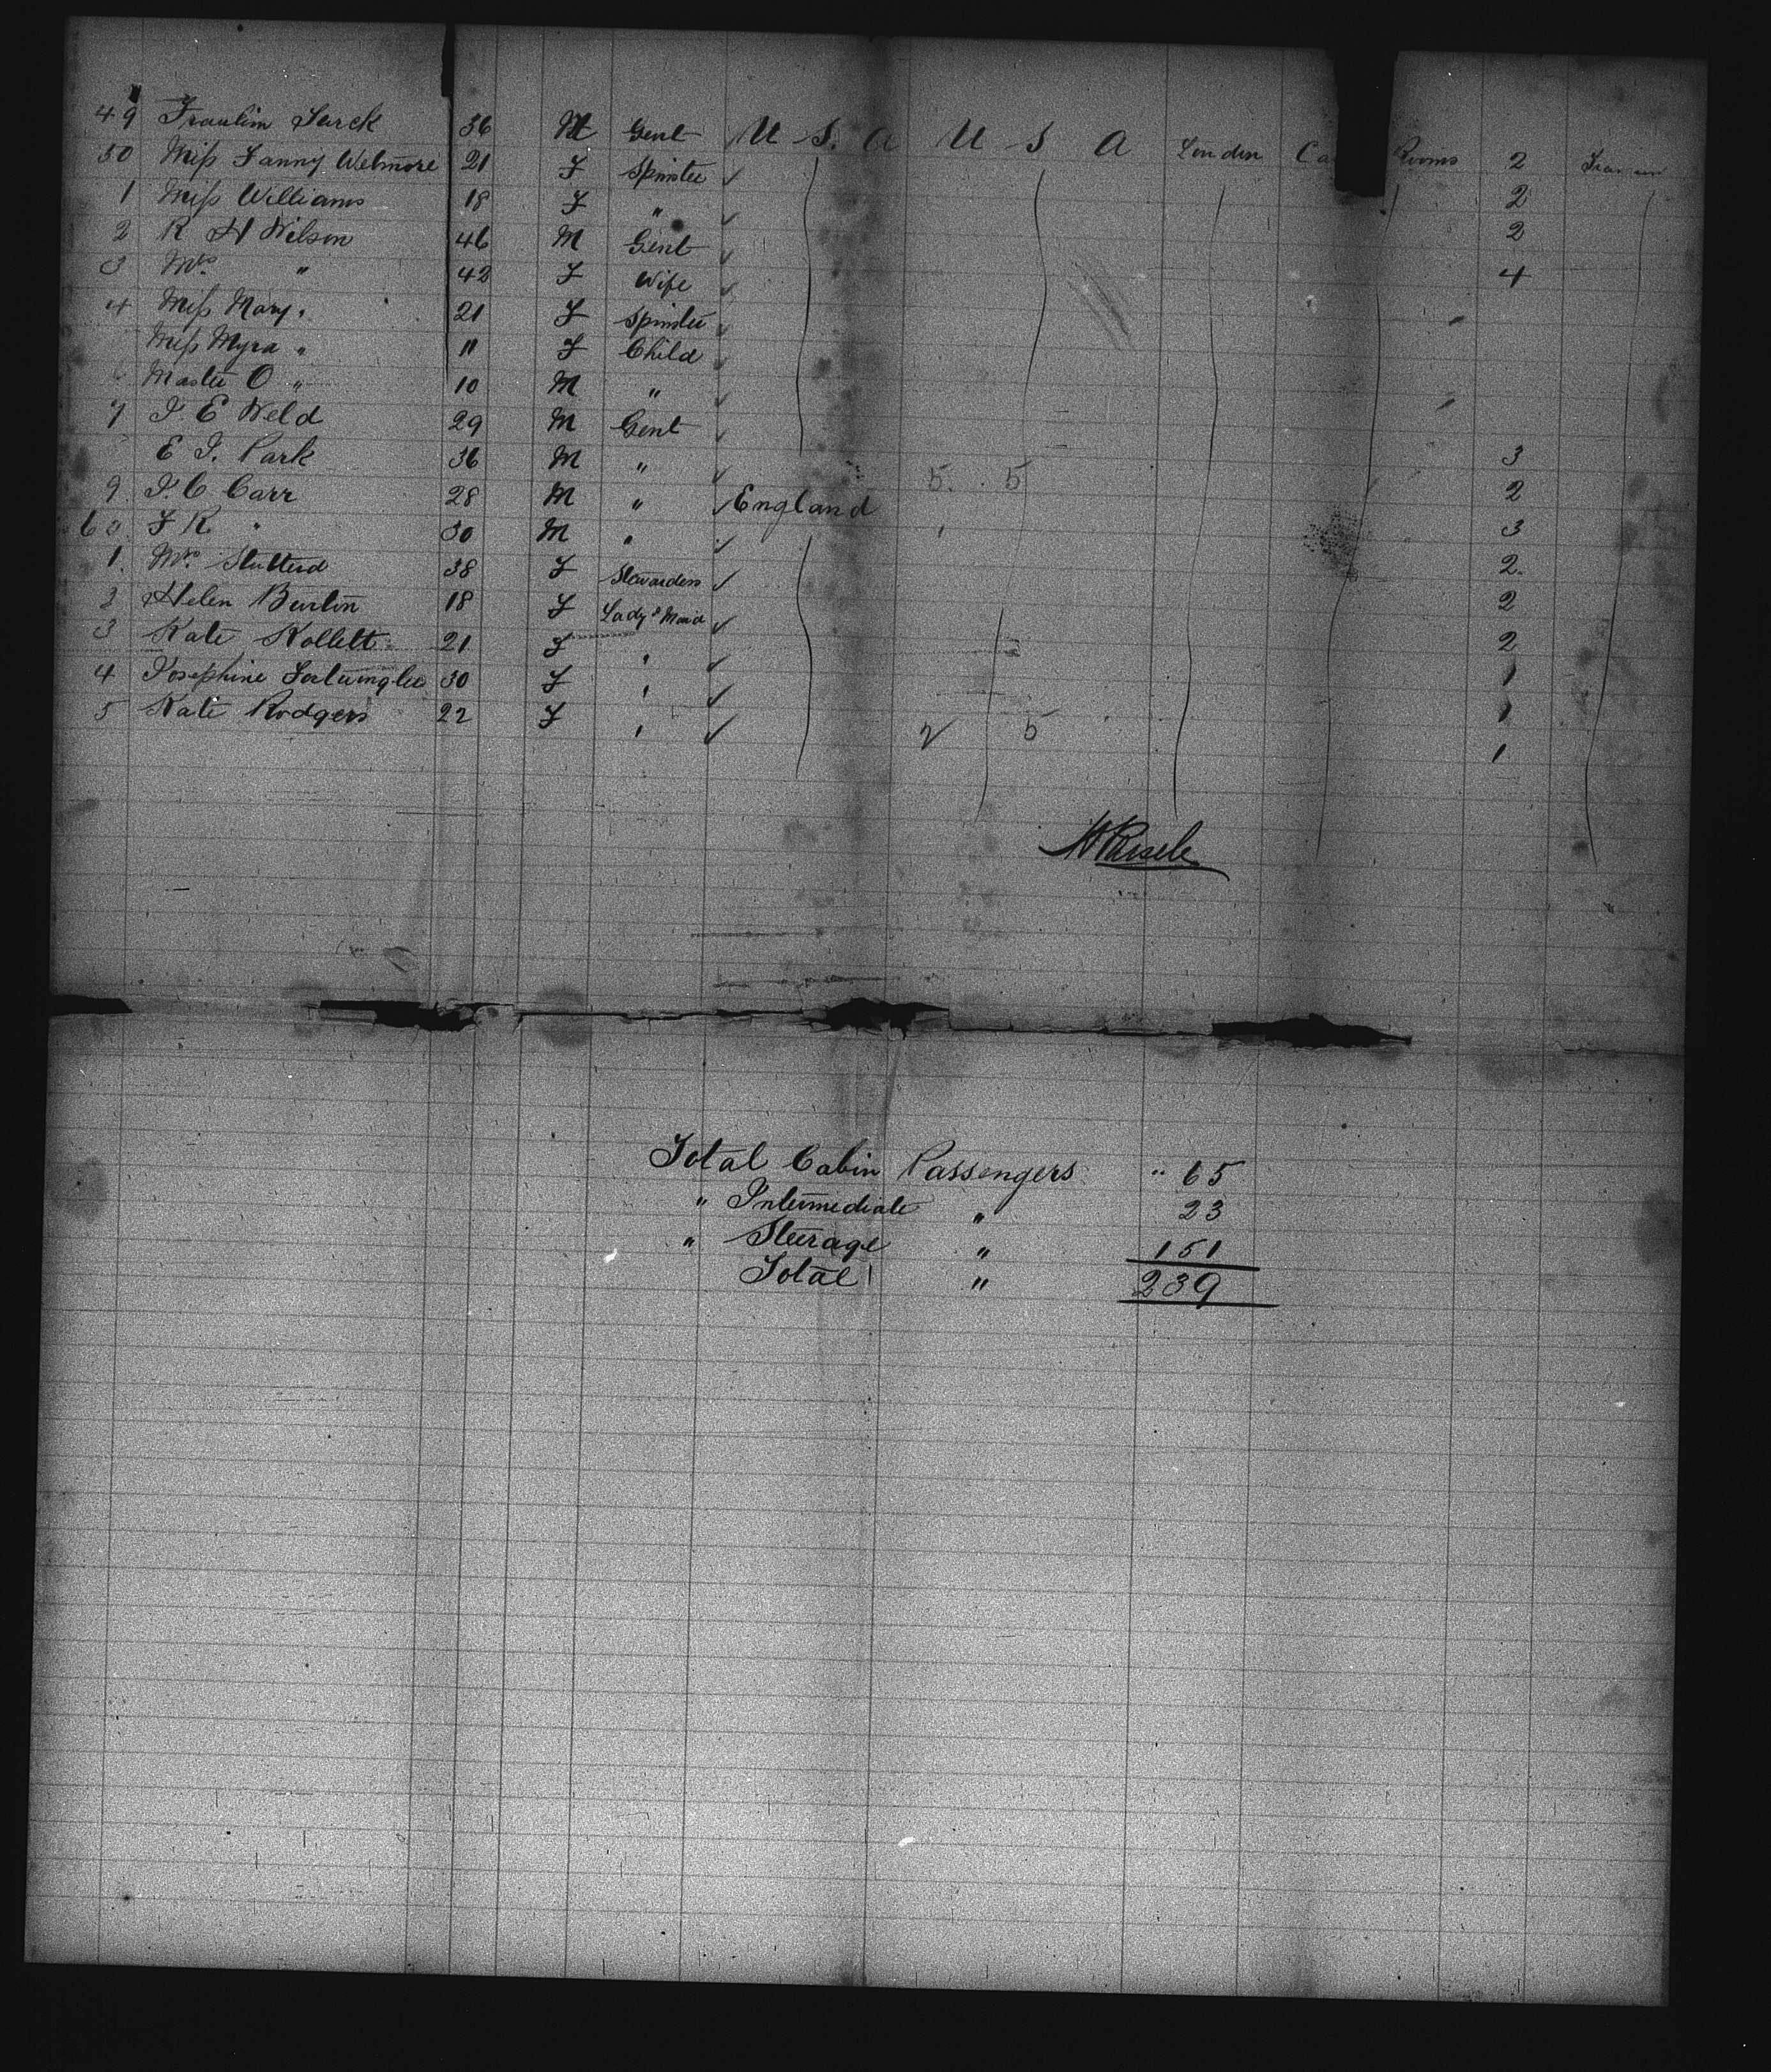 49 Fraulim Sarck 36 M Gent U. S. A U S A London Ca Rooms 2
50 Miss Fanny Wetmore 21 F Spinster ✓ 2
1 Miss Williams 18 F " ✓ 2
2 R H Wilson 46 M Gent ✓ 4
3 Mrs " 42 F Wife ✓
4 Miss Mary " 21 F Spinster ✓
Miss Myra " 11 F Child ✓
6 Master O " 10 M " ✓
7 J E Weld 29 M Gent ✓ 3
E J. Park 36 M " ✓ 5 5 2
9. J. C Carr 28 M " ✓ England 3
60. F R. " 30 M " ✓ 2
1. Mrs. Stutterd 38 F Stewardess ✓ 2
2 Helen Burton 18 F Lady's Maid ✓ 2
3 Kate Kollett 21 F " ✓ 1
4 Josephine 30 F " ✓ 1
5 Kate Rodgers 22 F " ✓ 2 5 1
Total Cabin Passengers " 65
" Intermediate " 23
" Steerage " 151
Total " 239